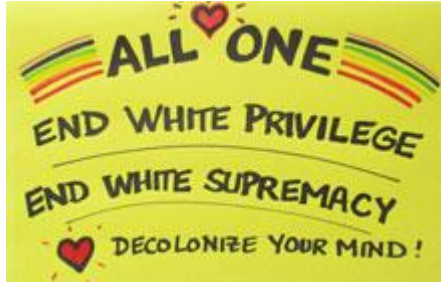 ALL ONE
END WHITE PRIVILEGE
END WHITE SUPREMACY
DECOLONIZE YOUR MIND!